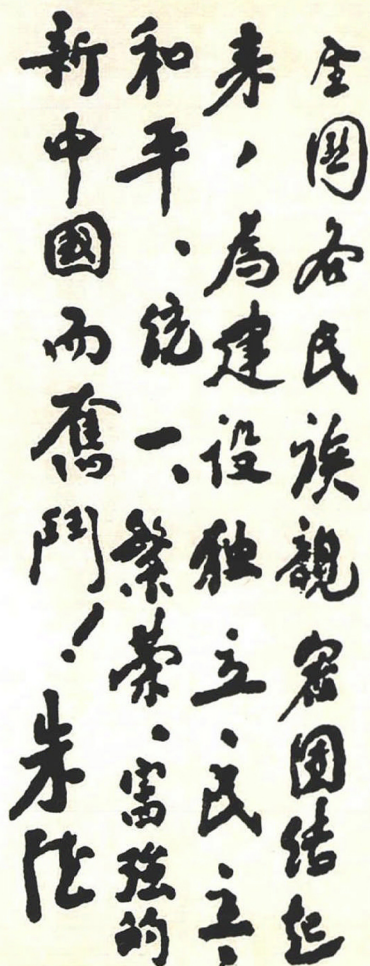 全國各民族親密团结起
来，為建设独立、民主、
和平、统一、繁荣、富强的
新中國而奮鬥！朱德